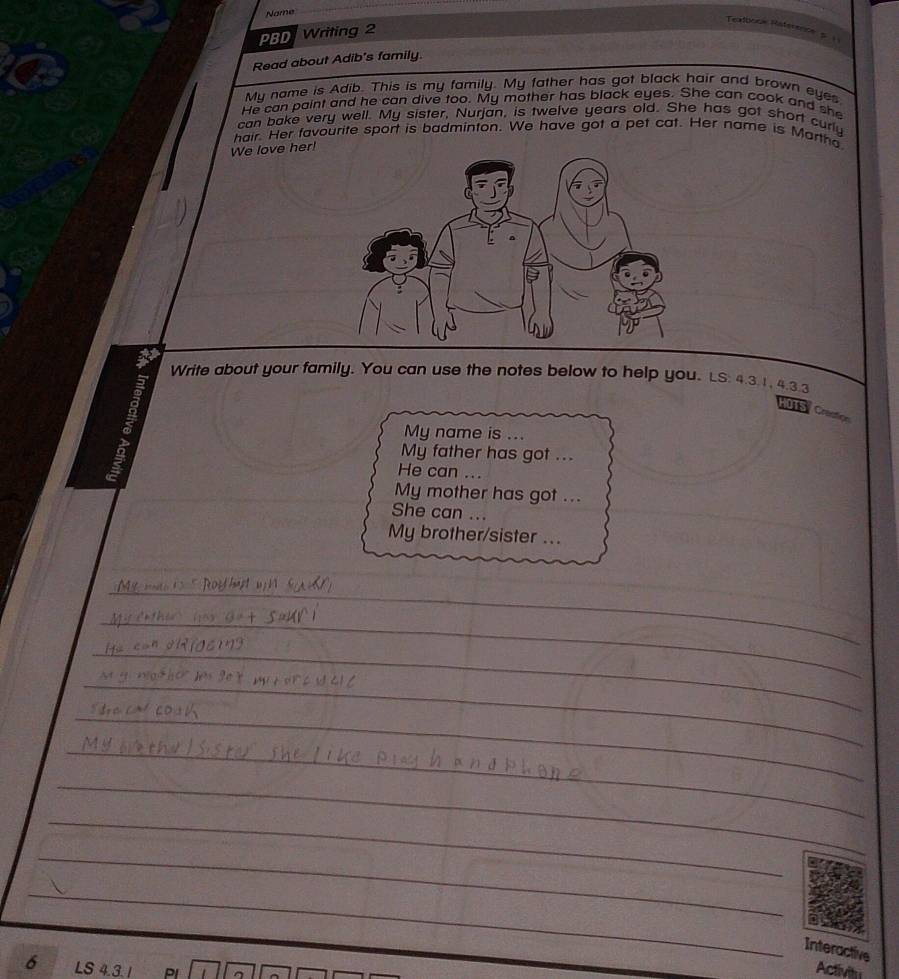 Name
Textbook Reference p.
PBD Writing 2
Read about Adib's family.
My name is Adib. This is my family. My father has got black hair and brown eyes.
He can paint and he can dive too. My mother has black eyes. She can cook and she
can bake very well. My sister, Nurjan, is twelve years old. She has got short curly
hair. Her favourite sport is badminton. We have got a pet cat. Her name is Martha.
We love her!
Interactive Activity
Write about your family. You can use the notes below to help you. LS: 4.3.1, 4.3.3
HOTS Creation
My name is ...
My father has got ...
He can ...
My mother has got ...
She can ...
My brother/sister ...
My is
My has got
He can
My mother has got
can cook
My brother/sister she like play handphone
Interactive
Activity
6 LS 4.3.1 PL 1 2